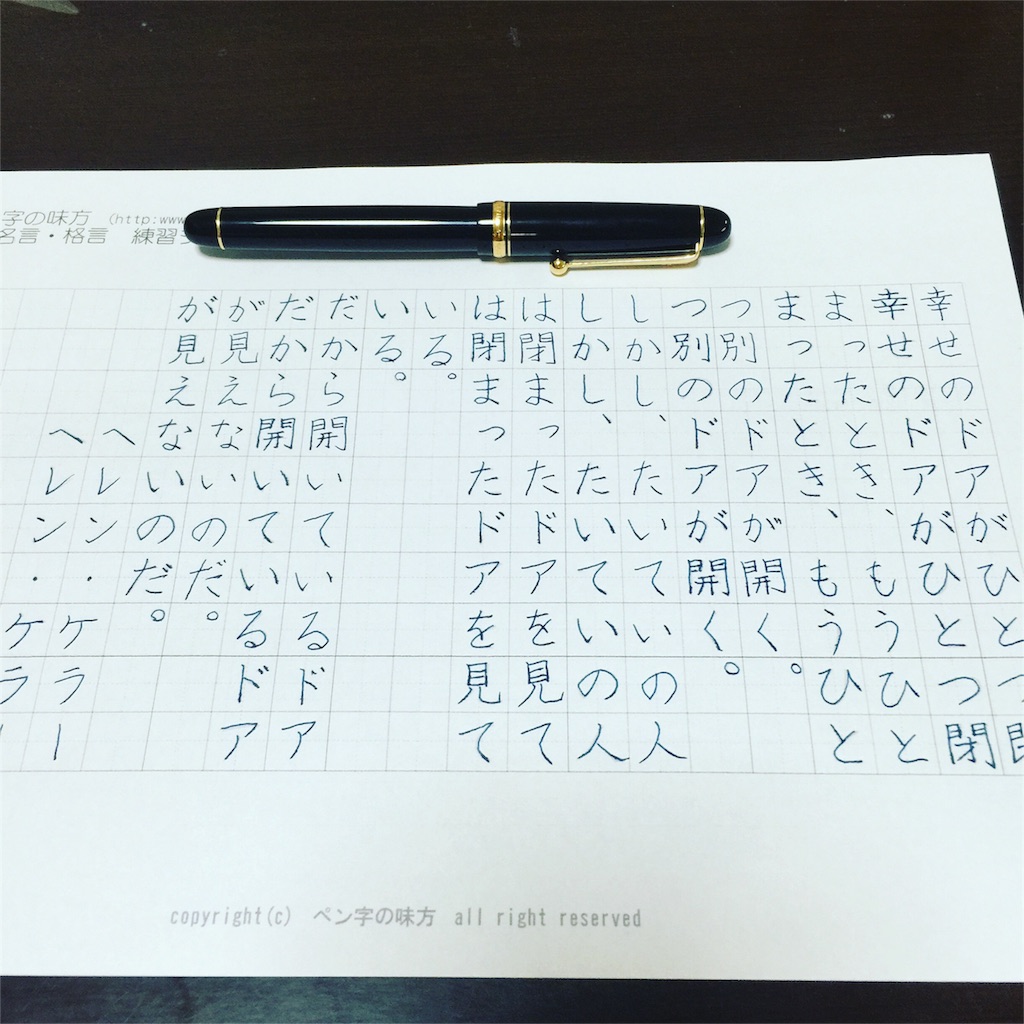 字の味方 (http:www
名言・格言 練習
幸せのドアがひとつ閉
幸せのドアがひとつ閉
まったとき、もうひと
まったとき、もうひと
つ別のドアが開く。
つ別のドアが開く。
しかし、たいていの人
しかし、たいていの人
は閉まったドアを見て
は閉まったドアを見て
いる。
いる。
だから開いているドア
だから開いているドア
が見えないのだ。
が見えないのだ。
ヘレン・ケラー
ヘレン・ケラー
copyright(c) ペン字の味方 all right reserved